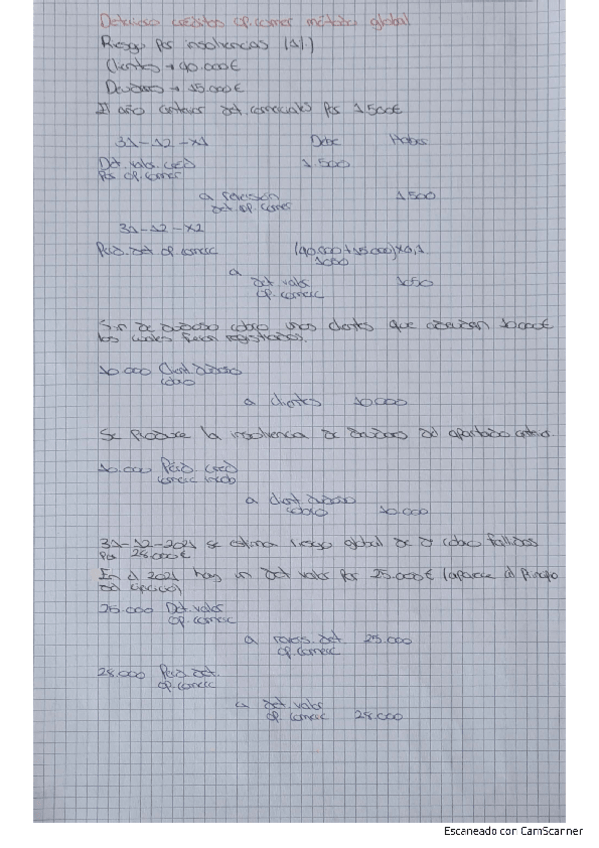 Deterioro créditos op.comer método global
Riesgo por insolvencias (1%)
Clientes → 90.000€
Deudores → 15.000€
El año anterior det. comerciales por 1.500€
31-12-X1 Debe Haber
Det. valor. cred 1.500
por op. comer
a reversión 1.500
det. op. comer
31-12-X2
Perd. det op. comerc (90.000+15.000)x0,1
1050
a
det. valor 1050
op. comerc
de dudoso cobro unos clientes que adeudan 10.000€
los cuales fueron registrados.
10.000 Client dudoso
cobro
a clientes 10.000
Se produce la insolvencia de deudores del apartado anterior.
10.000 Pérd cred
comerc incob
a client. dudoso
cobro 10.000
31-12-2021 se estima riesgo global de de cobro fallidos
por 28.000€
En el 2021 hay un det valor por 25.000€ (aparece al principio
del ejercicio)
25.000 Det. valor
op. comerc
a revers. det 25.000
op. comerc
28.000 Perd. det.
op. comerc
a det. valor
op. comerc 28.000
Escaneado con CamScanner